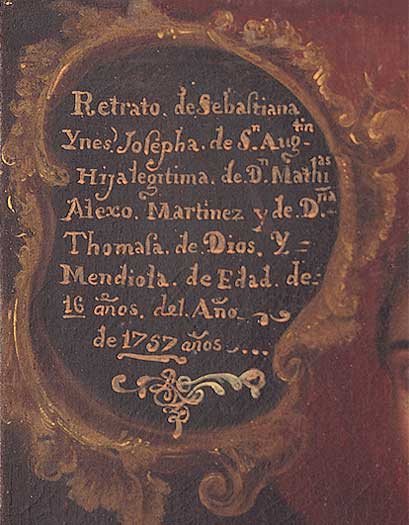 Retrato. de Sebastiana
Ynes, Josepha. de S.n Aug-tin
Hija legitima. de D.n Mathias
Alexo. Martinez y de D.ña
Thomasa. de Dios. Y=
Mendiola. de Edad. de=
16 años. del. Año
de 1757 años....